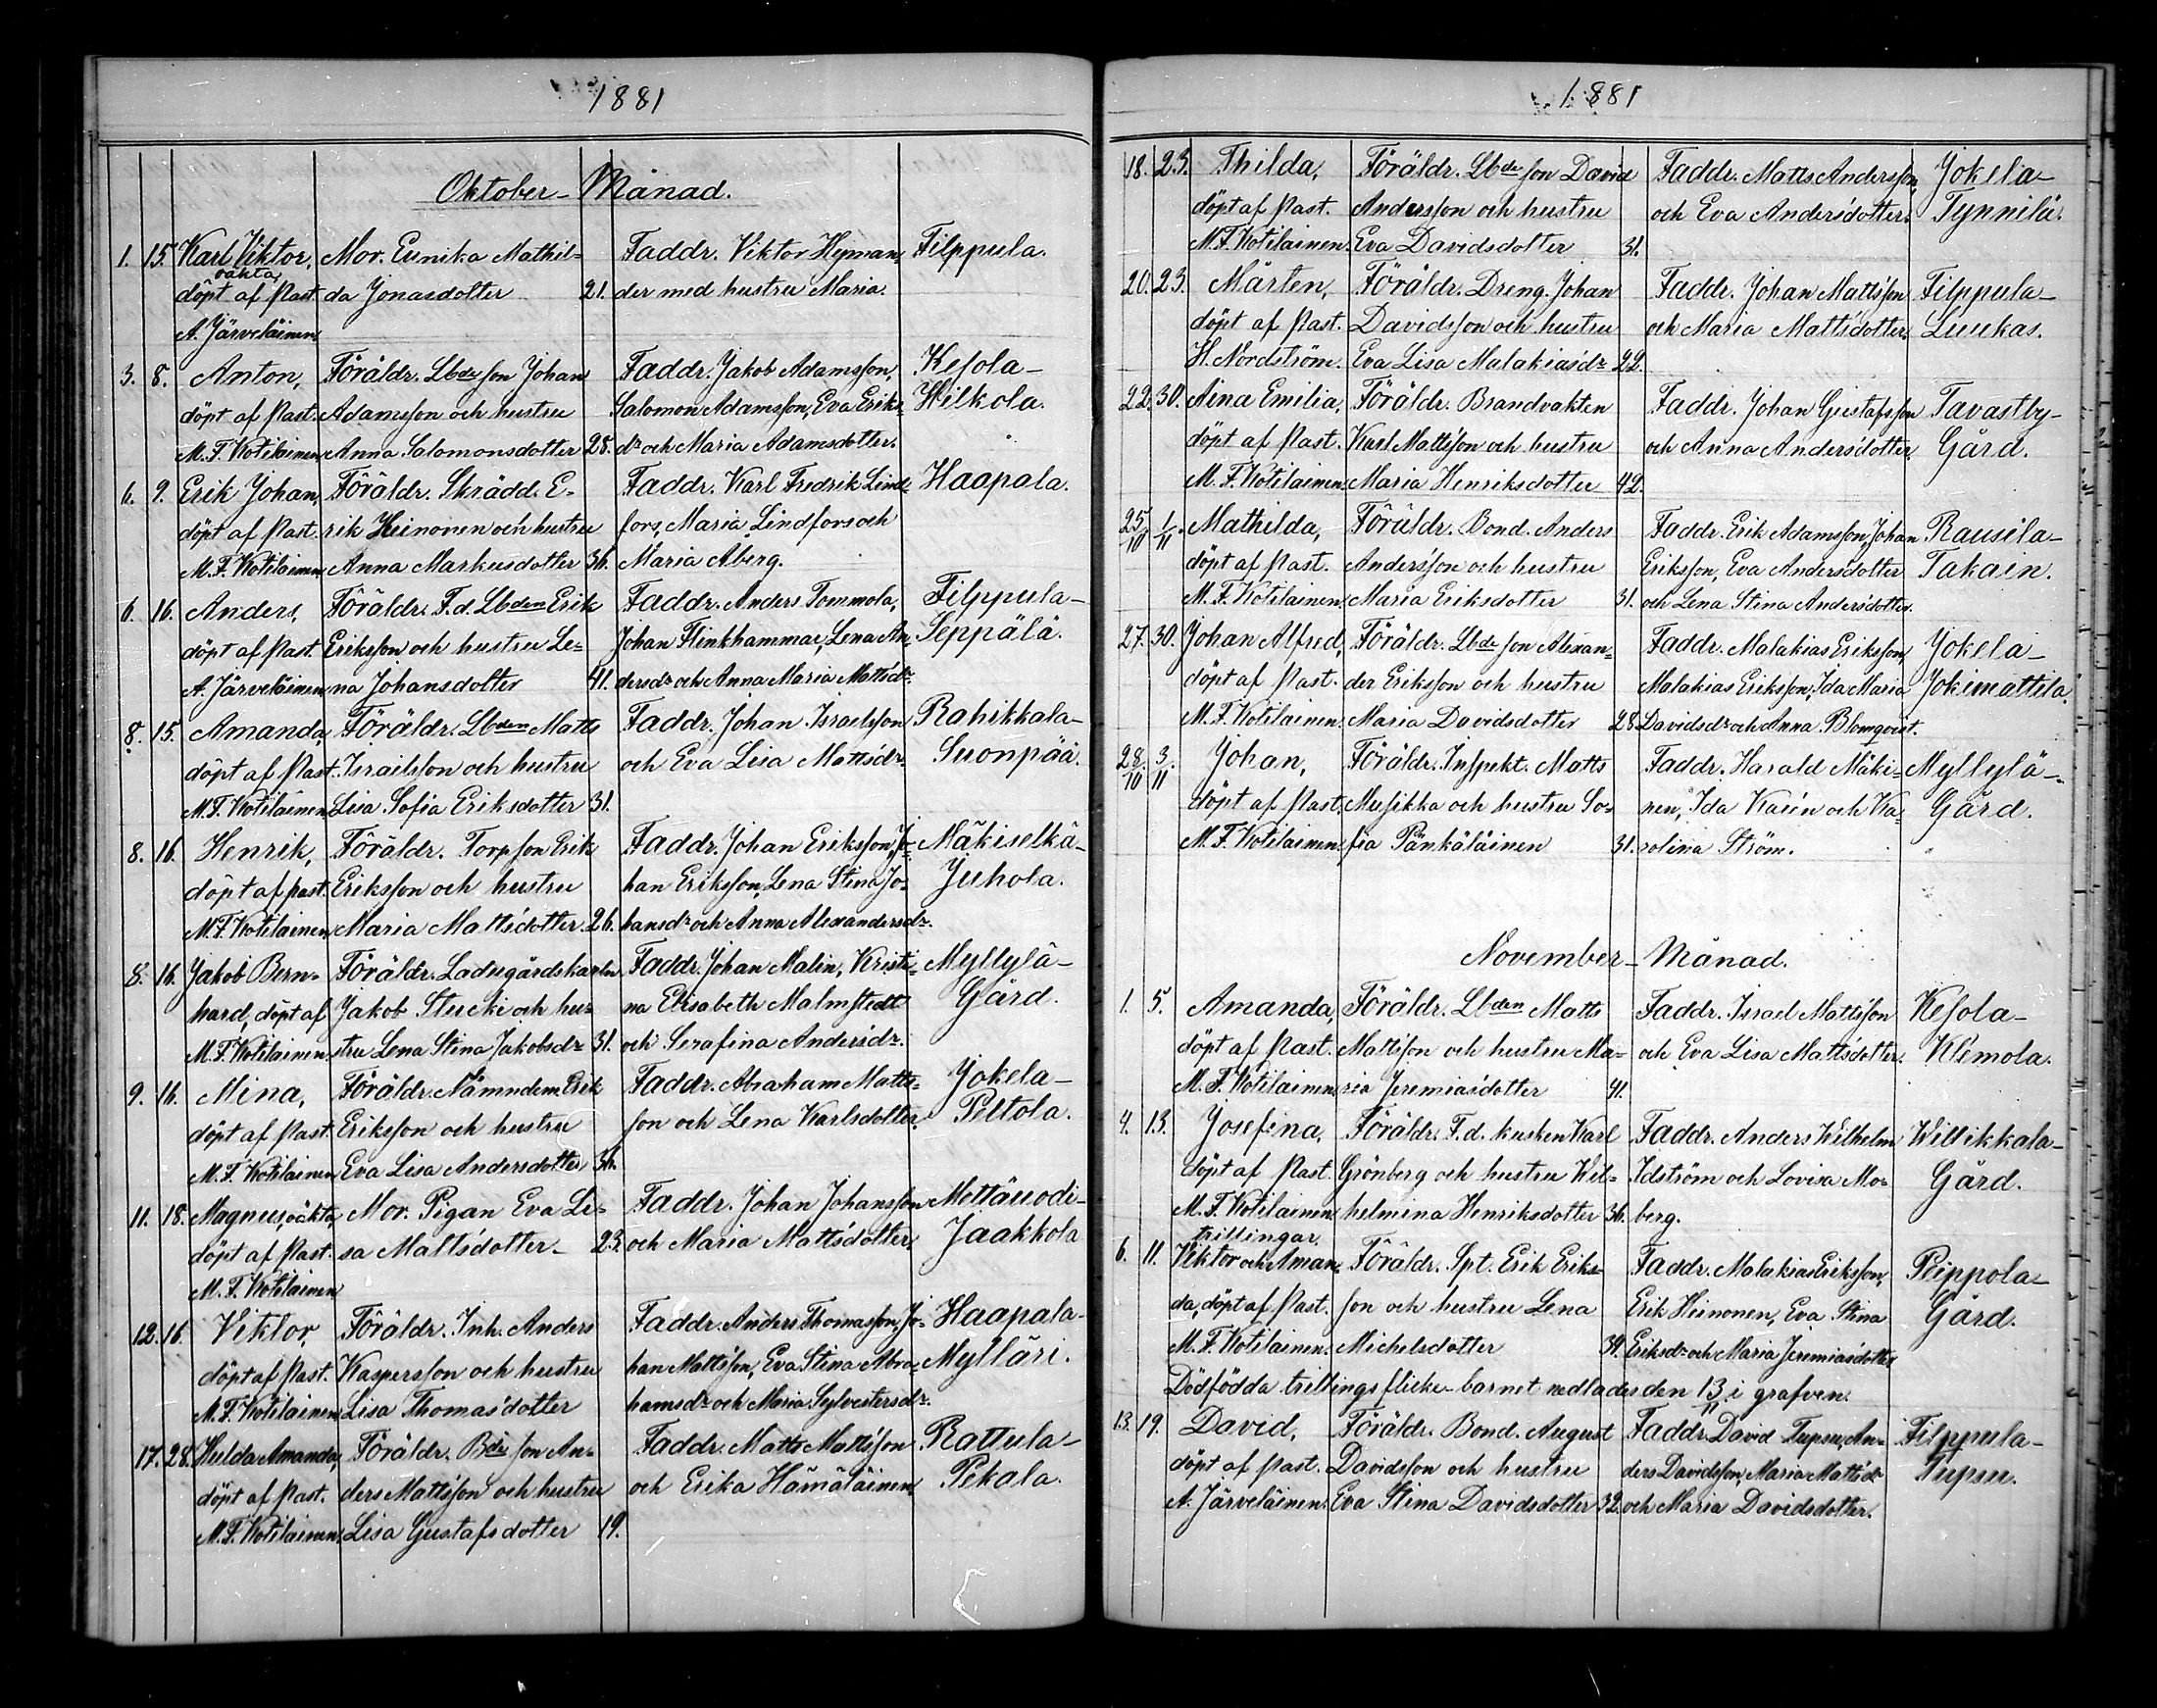 1881
Oktober - Månad.
1. 15. Karl Viktor, Mor. Eunika Mathil- Faddr. Viktor Heman, Filppula.
oäkta
döpt af Past. da Jonasdotter 21. der med hustru Maria.
A. Järveläinen
3. 8. Anton, Föräldr. Lbde son Johan Faddr. Jakob Adamsson, Kesola-
döpt af Past. Adamsson och hustru Salomon Adamsson, Eva Eriks- Hilkola.
M. F. Kotilainen Anna Salomonsdotter 28. dr och Maria Adamsdotter.
6. 9. Erik Johan, Föräldr. Skrädd. E- Faddr. Karl Fredrik Lind- Haapala.
döpt af Past. rik Heinonen och hustru fors, Maria Lindfors och
M. F. Kotilainen Anna Markusdotter 36. Maria Åberg.
6. 16. Anders, Föräldr. F.d. Lbden Erik Faddr. Anders Tommola, Filppula-
döpt af Past. Eriksson och hustru Le- Johan Flinkhammar, Lena An- Seppälä.
A. Järveläinen na Johansdotter 41. dersdr och Anna Maria Mattsdr.
8. 15. Amanda, Föräldr. Lbden Matts Faddr. Johan Israelsson Rahikkala-
döpt af Past. Israilsson och hustru och Eva Lisa Mattsdr. Suonpää.
M. F. Kotilainen Lisa Sofia Eriksdotter 31.
8. 16. Henrik, Föräldr. Torpson Erik Faddr. Johan Eriksson, Jo- Mäkiselkä-
döpt af past. Eriksson och hustru han Eriksson, Lena Stina Jo- Juhola.
M. F. Kotilainen Maria Mattsdotter 26. hansdr och Anna Alexandersdr.
8. 16. Jakob Bern- Föräldr. Ladugårdskarln Faddr. Johan Malin, Kristi- Myllylä-
hard, döpt af Jakob Stucki och hus- na Elisabeth Malmstedt Gård.
M. F. Kotilainen tru Lena Stina Jakobsdr 31. och Serafina Andersdr.
9. 16. Mina, Föräldr. Nämndem. Erik Faddr. Abraham Matts- Jokela-
döpt af Past. Eriksson och hustru son och Lena Karlsdotter. Peltola.
M. F. Kotilainen Eva Lisa Andersdotter 36.
11. 18. Magnus, oäkta Mor. Pigan Eva Li- Faddr. Johan Johansson Mettäuodi-
döpt af Past. sa Mattsdotter- 23. och Maria Mattsdotter, Jaakkola
M. F. Kotilainen
12. 16. Viktor, Föräldr. Inh. Anders Faddr. Anders Thomasson, Jo- Haapala-
döpt af Past. Kaspersson och hustru han Mattsson, Eva Stina Abra- Mylläri.
M. F. Kotilainen Lisa Thomasdotter hamsdr och Maria Sylvestersdr.
17. 28. Hulda Amanda, Föräldr. Bde son An- Faddr. Matts Mattsson Rattula-
döpt af Past. ders Mattsson och hustru och Erika Hämäläinen Pekala.
M. F. Kotilainen. Lisa Gustafsdotter 19.
1881
18. 23. Thilda, Föräldr. Lbde son David Faddr. Matts Andersson, Jokela-
döpt af Past. Andersson och hustru och Eva Andersdotter. Tynnilä.
M. F. Kotilainen. Eva Davidsdotter 31.
20. 23. Mårten, Föräldr. Dreng. Johan Faddr. Johan Mattsson Filppula-
döpt af Past. Davidsson och hustru och Maria Mattsdotter. Luukas.
H. Nordström. Eva Lisa Malakiasdr 22.
22. 30. Aina Emilia, Föräldr. Brandvakten Faddr. Johan Gustafsson Tavastby-
döpt af Past. Karl Mattsson och hustru och Anna Andersdotter Gård.
M. F. Kotilainen. Maria Henriksdotter 42.
25/10 1/11. Mathilda, Föräldr. Bond. Anders Faddr. Erik Adamsson, Johan Rausila-
döpt af Past. Andersson och hustru Eriksson, Eva Andersdotter Takain.
M. F. Kotilainen. Maria Eriksdotter 31. och Lena Stina Andersdotter.
27. 30. Johan Alfred, Föräldr. Lbde son Alexan- Faddr. Malakias Eriksson, Jokela-
döpt af Past. der Eriksson och hustru Malakias Eriksson, Ida Maria Jokimattila.
M. F. Kotilainen. Maria Davidsdotter 28. Davidsdr och Anna Blomqvist.
28/10 3/11. Johan, Föräldr. Inspekt. Matts Faddr. Harald Mäki- Myllylä-
döpt af Past. Musikka och hustru So- nen, Ida Kaién och Ka- Gård.
M. F. Kotilainen, fia Pänkäläinen 31. rolina Ström.
November - Månad.
1. 5. Amanda, Föräldr. Lbden Matts Faddr. Israel Mattsson Kesola-
döpt af Past. Mattsson och hustru Ma- och Eva Lisa Mattsdotter. Klemola.
M. F. Kotilainen ria Jeremiasdotter 41.
4. 13. Josefina, Föräldr. F.d. kusken Karl Faddr. Anders Wilhelm Willikkala-
döpt af Past. Grönberg och hustru Wil- Idström och Lovisa Mo- Gård.
M. F. Kotilainen. helmina Henriksdotter 36. berg.
trillingar,
6. 11. Viktor och Aman- Föräldr. Spt. Erik Eriks- Faddr. Malakias Eriksson, Peippola-
da, döpt af Past. son och hustru Lena Erik Heinonen, Eva Stina Gård.
M. F. Kotilainen. Michelsdotter 34. Eriksdr och Maria Jeremiasdotter
Dödfödda trillings flicke-barnet nedlades den 13/11 i grafven.
13. 19. David, Föräldr. Bond. August Faddr. David Tupsu, An- Filppula-
döpt af Past. Davidsson och hustru ders Davidsson, Maria Mattsdr Tupsu.
A. Järveläinen. Eva Stina Davidsdotter 32. och Maria Davidsdotter.